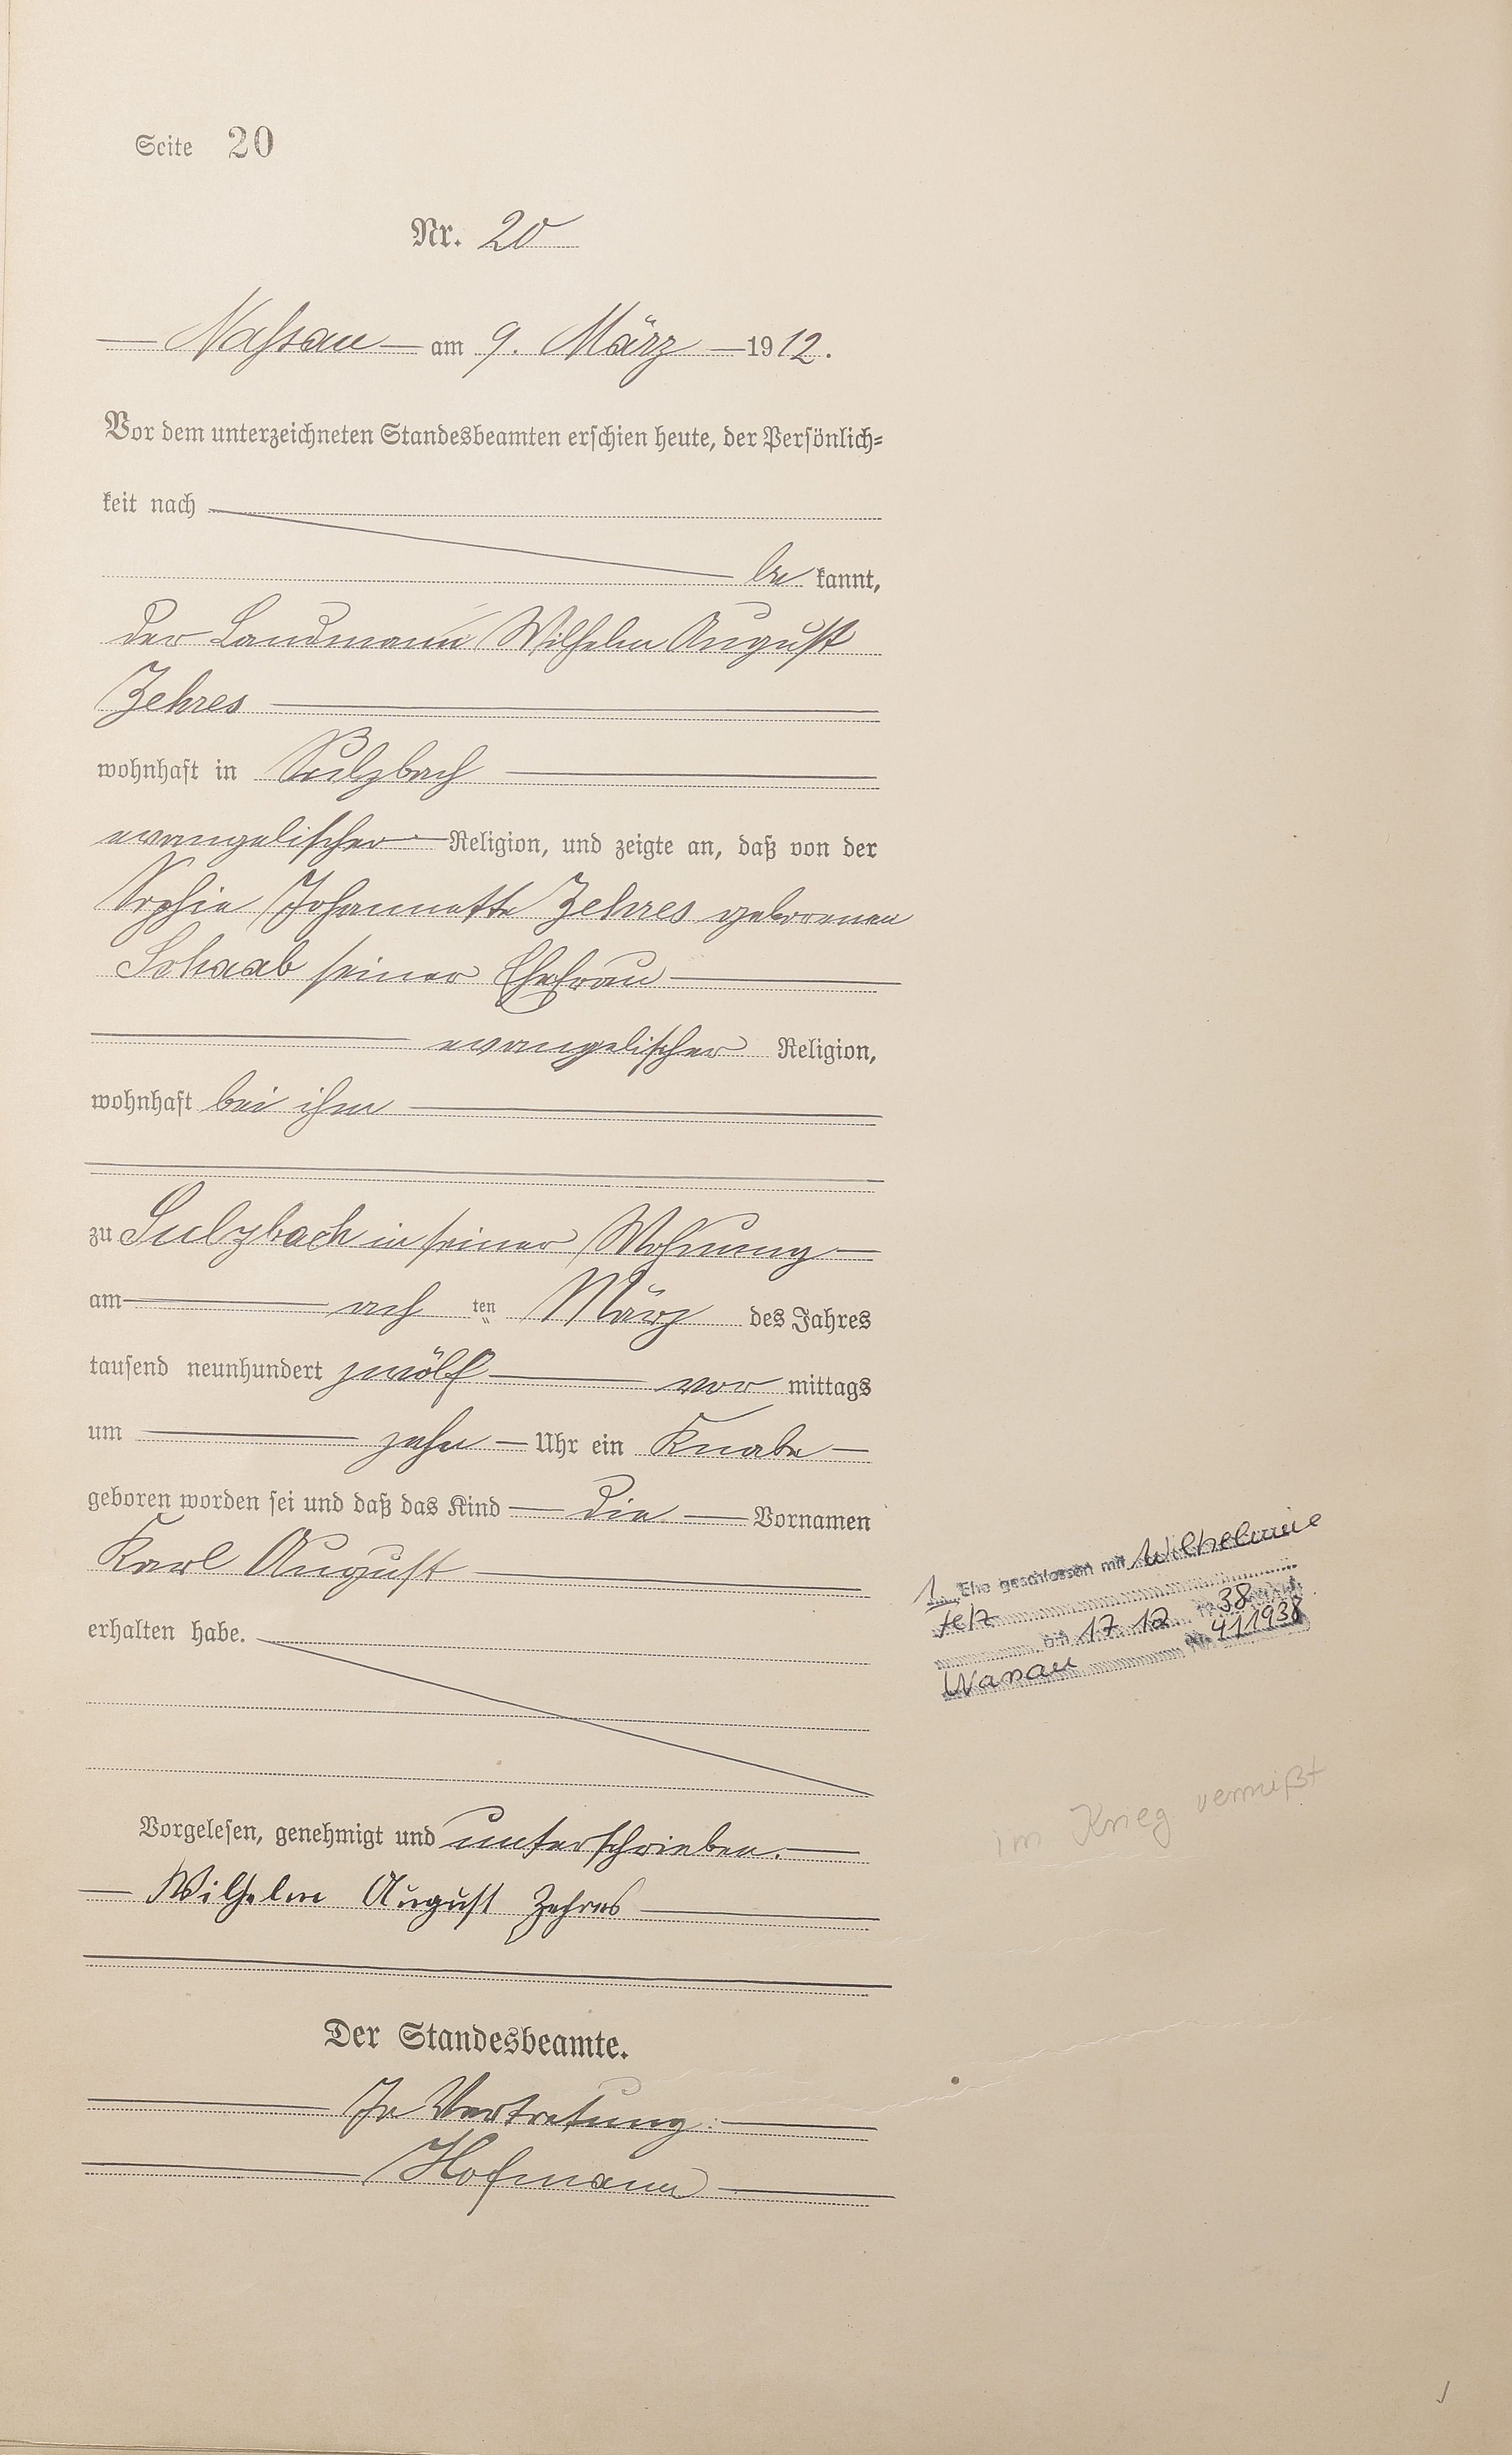 Seite 20
Nr. 20
Nassau am 9. März 1912.
Vor dem unterzeichneten Standesbeamten erschien heute, der Persönlich-
keit nach
be kannt,
der Landmann Wilhelm August
Zehres
wohnhaft in Sulzbach
evangelischer Religion, und zeigte an, daß von der
Sophie Johannette Zehres geborenen
Schaab seiner Ehefrau
evangelischer Religion,
wohnhaft bei ihm
zu Sulzbach in seiner Wohnung
am ach ten März des Jahres
tausend neunhundert zwölf vor mittags
um zehn Uhr ein Knabe
geboren worden sei und daß das Kind die Vornamen
Karl August
erhalten habe.
1. Ehe geschlossen mit Wilhelmine
am 17 12 38
411938
im Krieg vermißt
Vorgelesen, genehmigt und unterschrieben.
Wilhelm August Zehres
Der Standesbeamte.
In Vertretung:
Hofmann